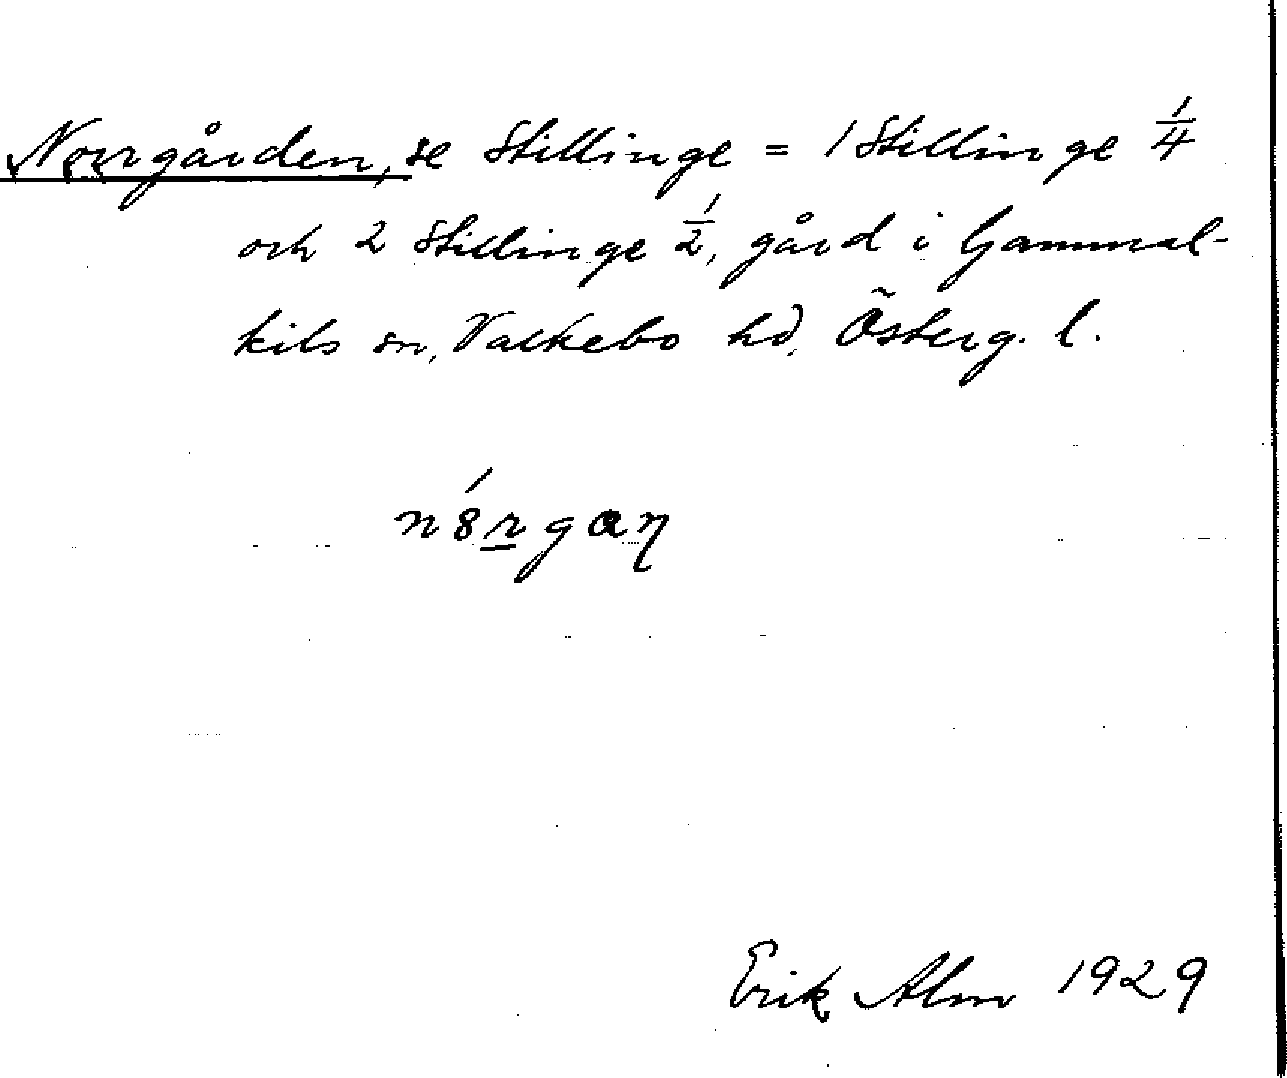 Norrgården, se Stillinge = 1 Stillinge 1/4
och 2 Stillinge 1/2, gård i Gammal-
kils sn, Valkebo hd, Österg. l.
n8́rgaŋ
Erik Alm 1929